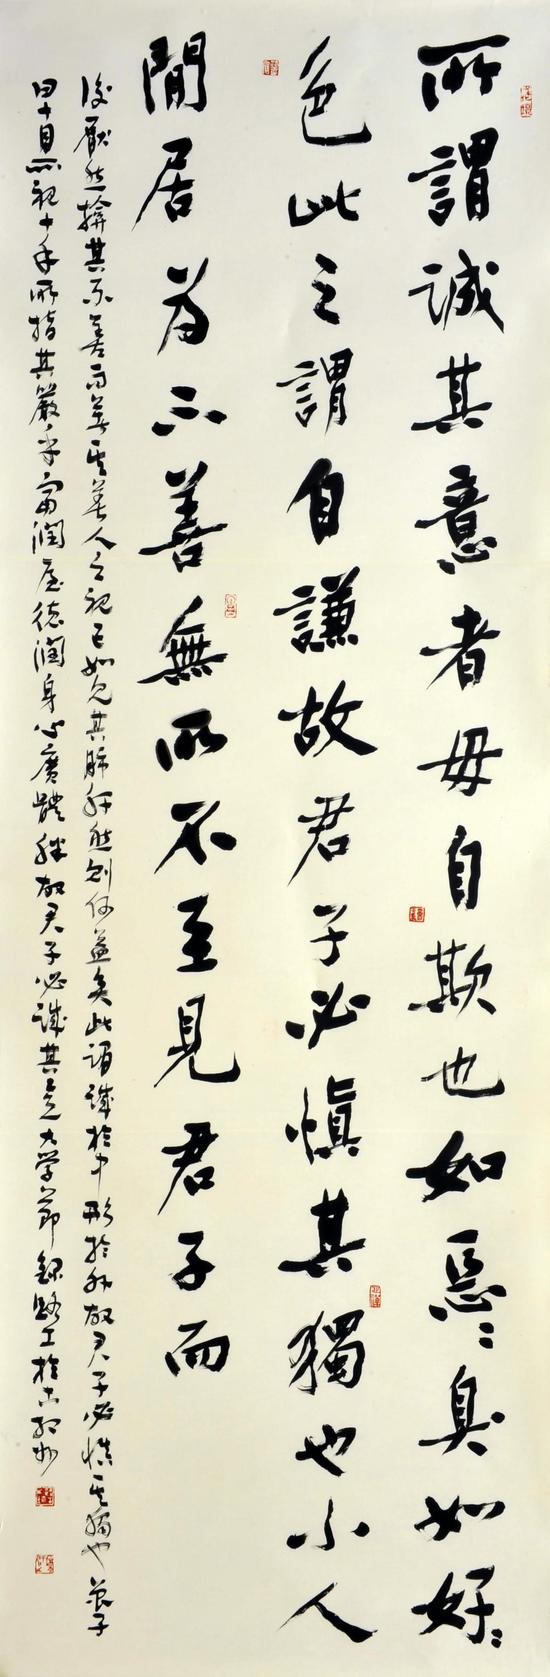 所謂誠其意者毋自欺也如惡〻臭如好〻
色此之謂自謙故君子必慎其獨也小人
閒居為不善無所不至見君子而
後厭然揜其不善而著其善人之視己如見其肺肝然則何益矣此謂誠於中形於外故君子必慎其獨也曾子
曰十目所視十手所指其嚴乎富潤屋德潤身心廣體胖故君子必誠其意大学節錄路工於古